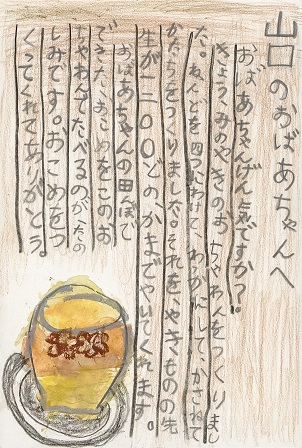 山口のおばあちゃんへ
おばあちゃんげん気ですか？
きょう、みのやきのおちゃわんをつくりまし
た。ねんどを四つにわけてわっかにして、かさねて
かたちをつくりました。それを、やきものの先
生が一二〇〇どの、かまでやいてくれます。
おばあちゃんの田んぼで
できた、おこめをこのお
ちゃわんでたべるのがたの
しみです。おこめをつ
くってくれてありがとう。